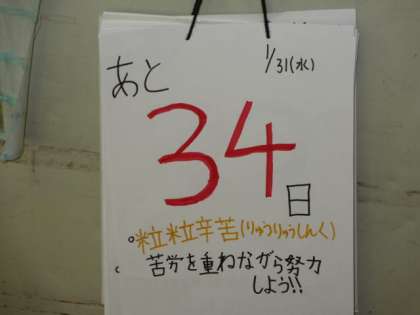 1/31(水)
あと
34
日
粒粒辛苦(りゅうりゅうしんく)
苦労を重ねながら努力
しよう!!